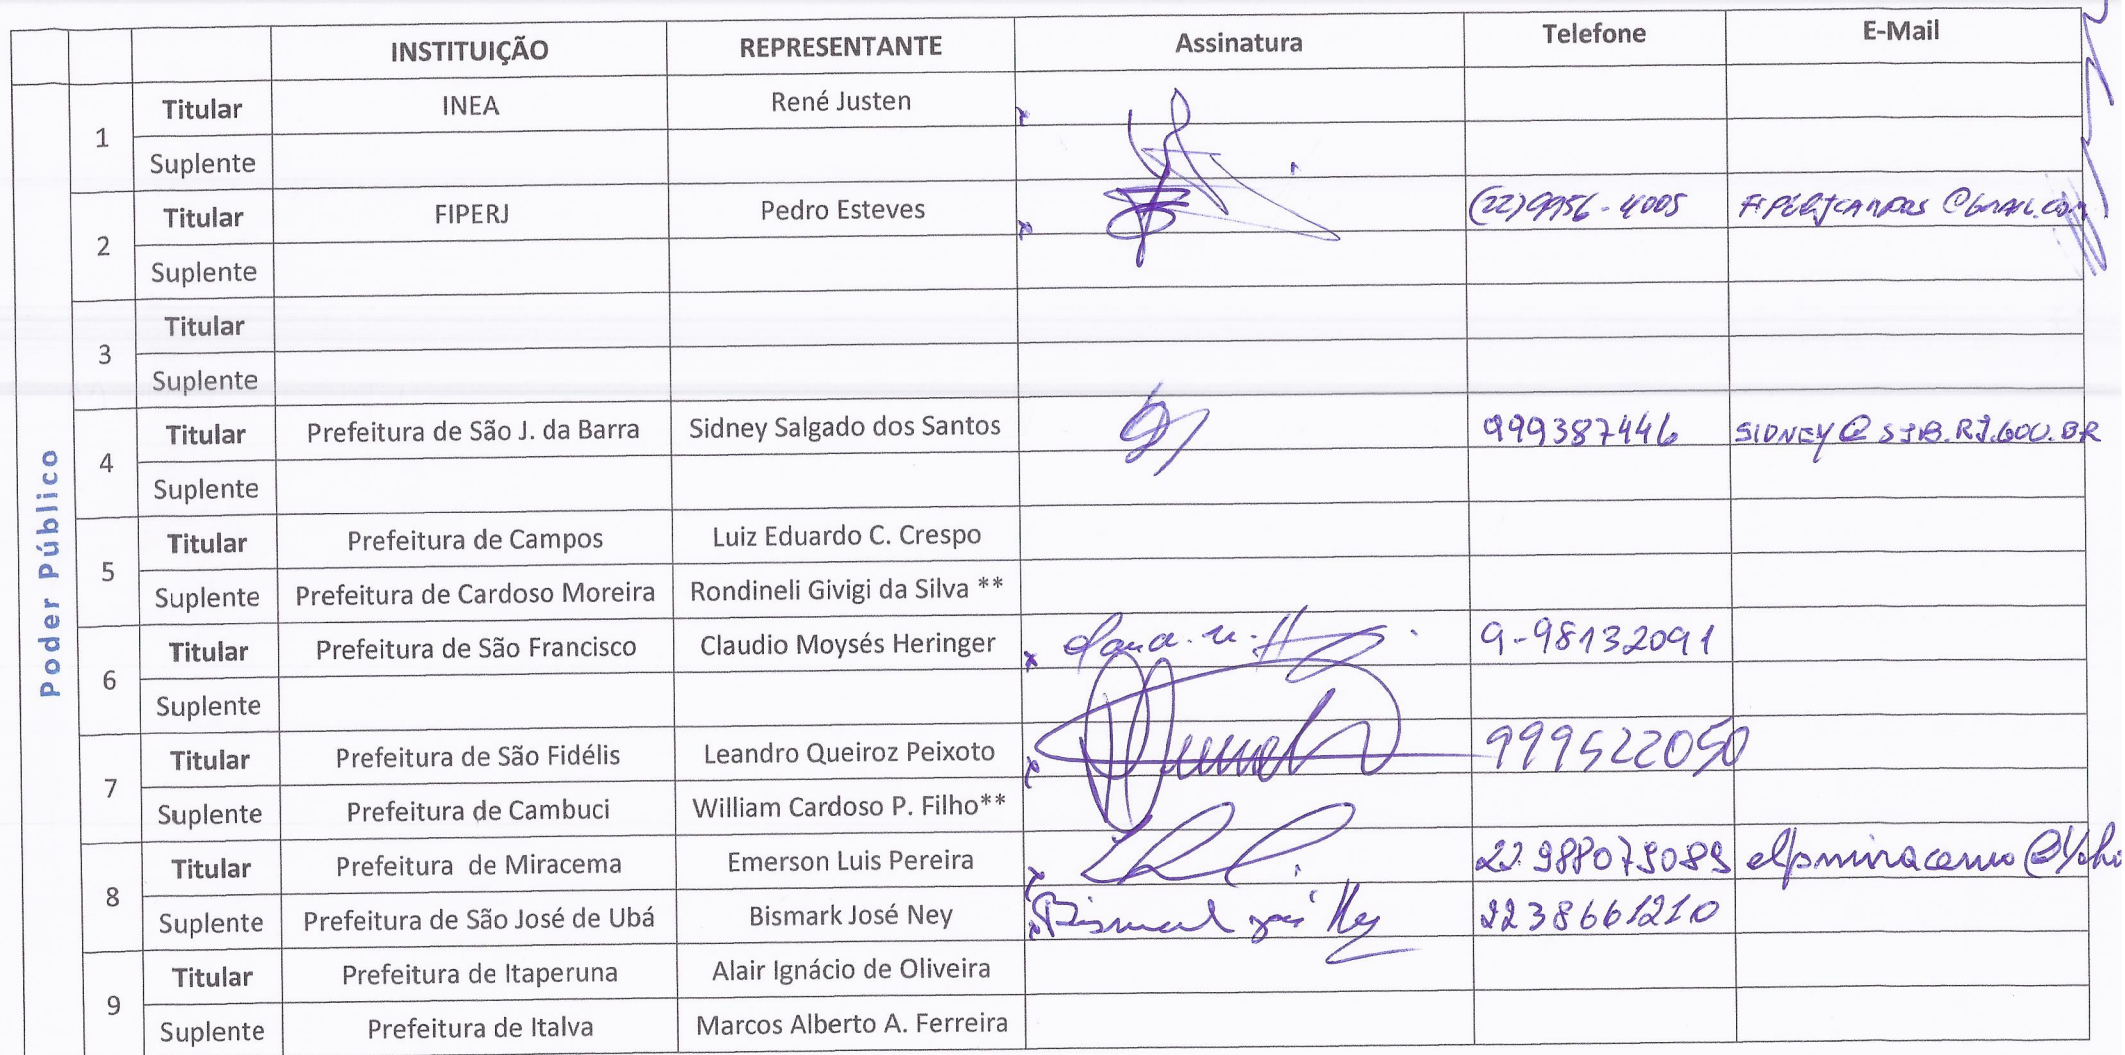 INSTITUIÇÃO REPRESENTANTE Assinatura Telefone E-Mail
Poder Público
1 Titular INEA René Justen
Suplente
2 Titular FIPERJ Pedro Esteves (22) 9956-4005 FIPERJCAMPOS@GMAIL.COM
Suplente
3 Titular
Suplente
4 Titular Prefeitura de São J. da Barra Sidney Salgado dos Santos 999387446 SIDNEY@SJB.RJ.GOV.BR
Suplente
5 Titular Prefeitura de Campos Luiz Eduardo C. Crespo
Suplente Prefeitura de Cardoso Moreira Rondineli Givigi da Silva **
6 Titular Prefeitura de São Francisco Claudio Moysés Heringer 9-98132091
Suplente
7 Titular Prefeitura de São Fidélis Leandro Queiroz Peixoto 999522050
Suplente Prefeitura de Cambuci William Cardoso P. Filho**
8 Titular Prefeitura de Miracema Emerson Luis Pereira 22 988075089
Suplente Prefeitura de São José de Ubá Bismark José Ney Bismark José Ney 2238661210
9 Titular Prefeitura de Itaperuna Alair Ignácio de Oliveira
Suplente Prefeitura de Italva Marcos Alberto A. Ferreira